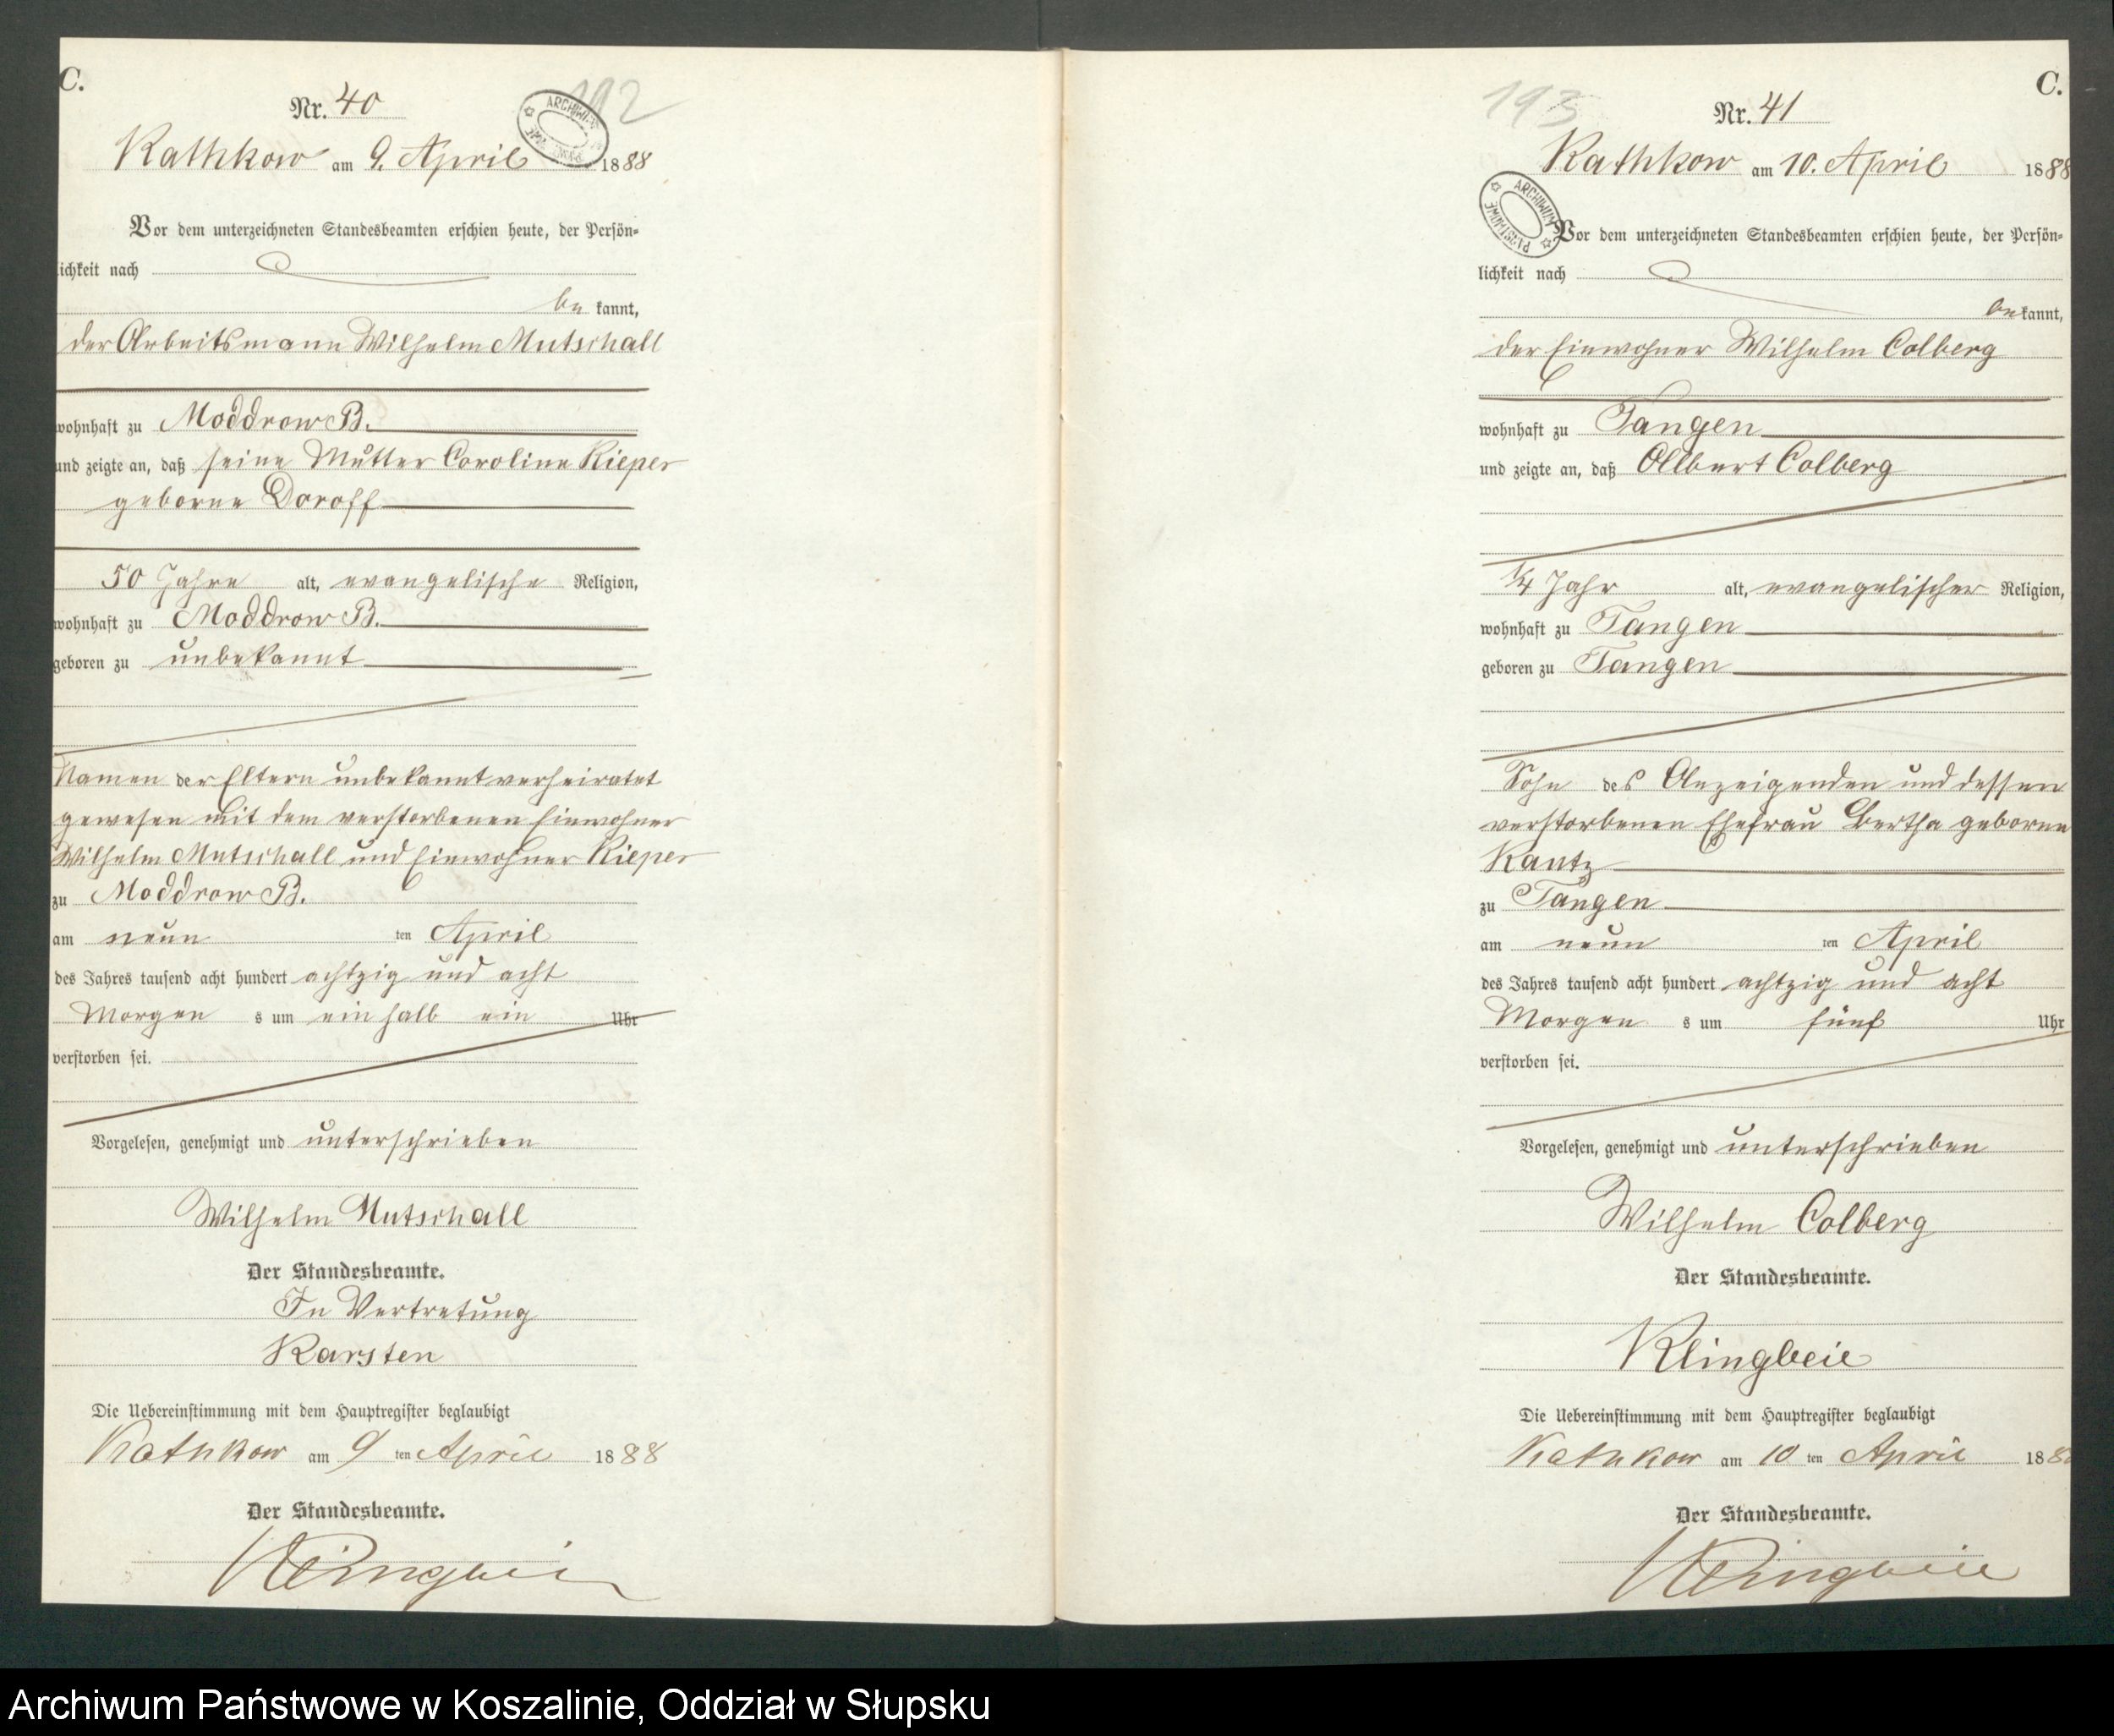 C.
192
Nr. 40
Rathkow am 9. April 1888
Vor dem unterzeichneten Standesbeamten erschien heute, der Persön-
lichkeit nach
be kannt,
der Arbeitsmann Wilhelm Mutschall
wohnhaft zu Moddrow B.
und zeigte an, daß seine Mutter Caroline Rieper
geborne Doroff
50 Jahre alt, evangelische Religion,
wohnhaft zu Moddrow B.
geboren zu unbekannt
Namen der Eltern unbekannt verheiratet
gewesen mit dem verstorbenen Einwohner
Wilhelm Mutschall und Einwohner Rieper
zu Moddrow B.
am neun ten April
des Jahres tausend acht hundert achtzig und acht
Morgen s um ein halb ein Uhr
verstorben sei.
Vorgelesen, genehmigt und unterschrieben
Wilhelm Mutschall
Der Standesbeamte.
In Vertretung
Karsten
Die Uebereinstimmung mit dem Hauptregister beglaubigt
Rathkow am 9 ten April 1888
Der Standesbeamte.
Klingbeil
C.
193
Nr. 41
Rathkow am 10. April 1888
ARCHIWUM PAŃSTWOWE
Vor dem unterzeichneten Standesbeamten erschien heute, der Persön-
lichkeit nach
be kannt,
der Einwohner Wilhelm Colberg
wohnhaft zu Tangen
und zeigte an, daß Albert Colberg
1/4 Jahr alt, evangelischer Religion,
wohnhaft zu Tangen
geboren zu Tangen
Sohn des Anzeigenden und dessen
verstorbenen Ehefrau Bertha geborne
Kautz
zu Tangen
am neun ten April
des Jahres tausend acht hundert achtzig und acht
Morgen s um fünf Uhr
verstorben sei.
Vorgelesen, genehmigt und unterschrieben
Wilhelm Colberg
Der Standesbeamte.
Klingbeil
Die Uebereinstimmung mit dem Hauptregister beglaubigt
Rathkow am 10 ten April 188
Der Standesbeamte.
Klingbeil
Archiwum Państwowe w Koszalinie, Oddział w Słupsku